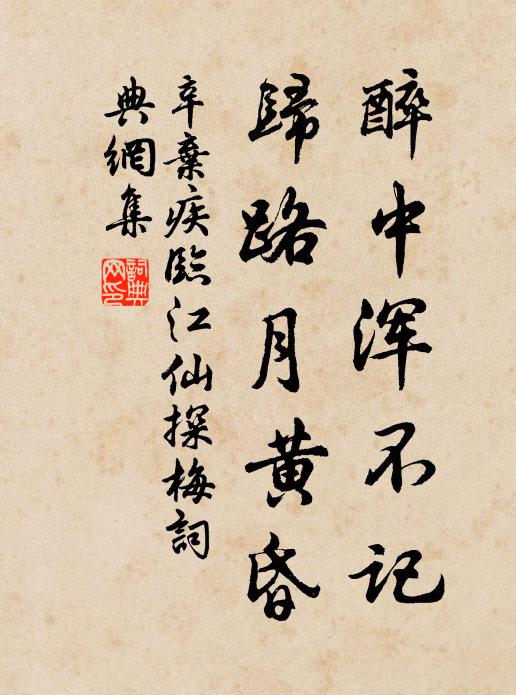 醉中浑不记
歸路月黄昏
辛棄疾臨江仙探梅詞
典網集
詞典
网印